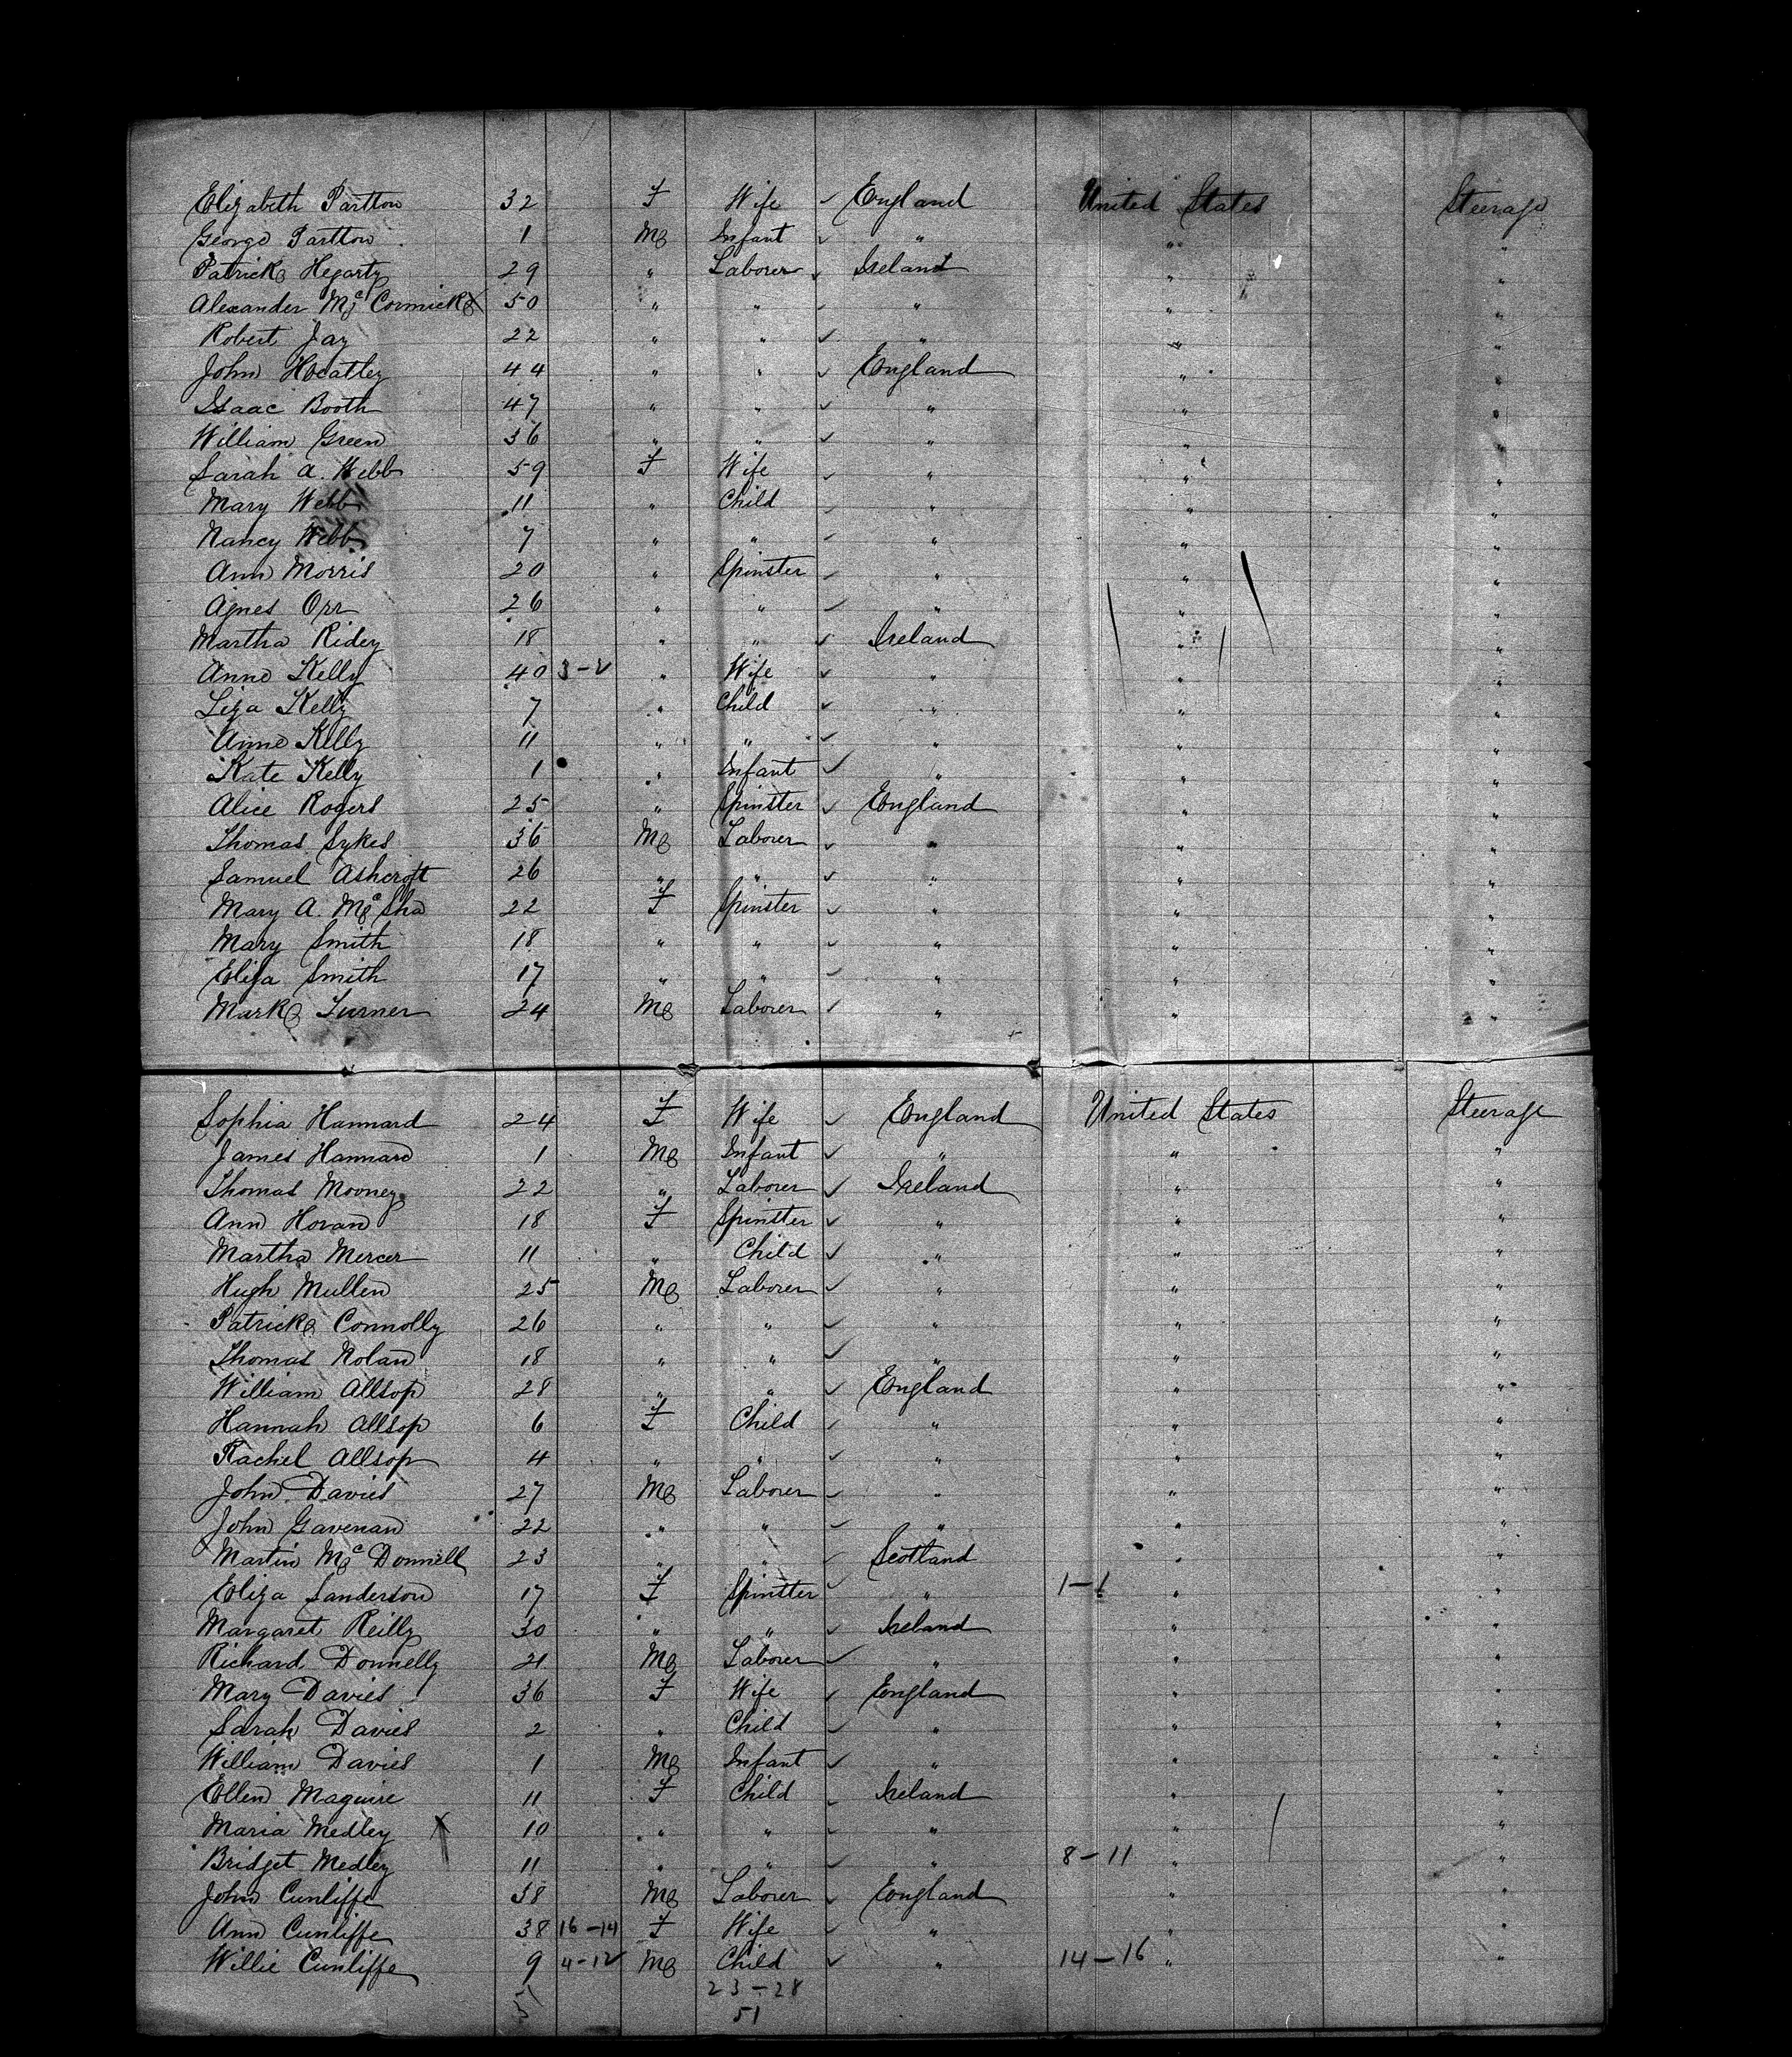 Elizabeth Partton 32 F Wife ✓ England United States Steerage
George Partton 1 M Infant ✓ " " "
Patrick Hegarty 29 " Laborer ✓ Ireland " "
Alexander McCormick X 50 " " ✓ " " "
Robert Jay 22 " " ✓ " " "
John Heatley 44 " " ✓ England " "
Isaac Booth 47 " " ✓ " " "
William Green 36 " " ✓ " " "
Sarah A. Webb 59 F Wife ✓ " " "
Mary Webb 11 " Child ✓ " " "
Nancy Webb 7 " " ✓ " " "
Ann Morris 20 " Spinster ✓ " " "
Agnes Orr 26 " " ✓ " " "
Martha Ridey 18 " " ✓ Ireland " "
Anne Kelly 40 3-2 " Wife ✓ " " "
Liza Kelly 7 " Child ✓ " " "
Anne Kelly 11 " " ✓ " " "
Kate Kelly 1 " Infant ✓ " " "
Alice Rogers 25 " Spinster ✓ England " "
Thomas Sykes 36 M Laborer ✓ " " "
Samuel Ashcroft 26 " " ✓ " " "
Mary A. McSha 22 F Spinster ✓ " " "
Mary Smith 18 " " ✓ " " "
Eliza Smith 17 " " ✓ " " "
Mark Turner 24 M Laborer ✓ " " "
Sophia Hannard 24 F Wife ✓ England United States Steerage
James Hannard 1 M Infant ✓ " " "
Thomas Mooney 22 " Laborer ✓ Ireland " "
Ann Horan 18 F Spinster ✓ " " "
Martha Mercer 11 " Child ✓ " " "
Hugh Mullen 25 M Laborer ✓ " " "
Patrick Connolly 26 " " ✓ " " "
Thomas Nolan 18 " " ✓ " " "
William Allsop 28 " " ✓ England " "
Hannah Allsop 6 F Child ✓ " " "
Rachel Allsop 4 " " ✓ " " "
John Davies 27 M Laborer ✓ " " "
John Gavenan 22 " " ✓ " " "
Martin McDonnell 23 " " ✓ Scotland " "
Eliza Sanderson 17 F Spinster ✓ " 1-1 " "
Margaret Reilly 30 " " ✓ Ireland " "
Richard Donnelly 21 M Laborer ✓ " " "
Mary Davies 36 F Wife ✓ England " "
Sarah Davies 2 " Child ✓ " " "
William Davies 1 M Infant ✓ " " "
Ellen Maguire 11 F Child ✓ Ireland " "
Maria Medley X 10 " " ✓ " " "
Bridget Medley 11 " " ✓ " 8-11 " "
John Cunliffe 38 M Laborer ✓ England " "
Ann Cunliffe 38 16-14 F Wife ✓ " " "
Willie Cunliffe 9 4-12 M Child ✓ " 14-16 " "
23-28
51 51